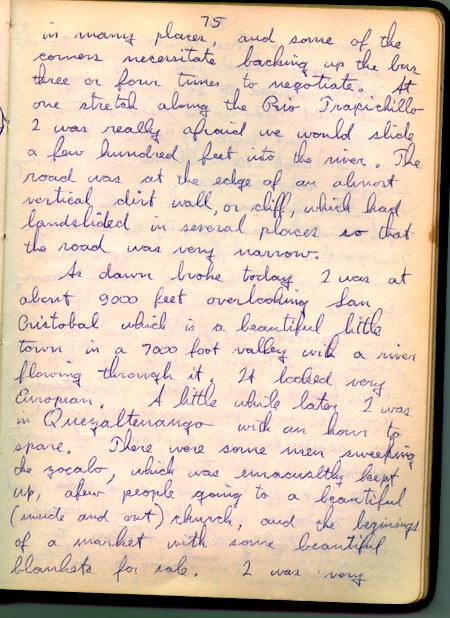 75
in many places, and some of the
corners necessitate backing up the bus
three or four times to negotiate. At
one stretch along the Rio Trapichillo
I was really afraid we would slide
a few hundred feet into the river. The
road was at the edge of an almost
vertical dirt wall, or cliff, which had
landslided in several places so that
the road was very narrow.
As dawn broke today I was at
about 9000 feet overlooking San
Cristobal which is a beautiful little
town in a 7000 foot valley with a river
flowing through it. It looked very
European. A little while later I was
in Quezaltenango with an hour to
spare. There were some men sweeping
the zocalo, which was emacualthy kept
up, afew people going to a beautiful
(inside and out) church, and the beginings
of a market with some beautiful
blankets for sale. I was very